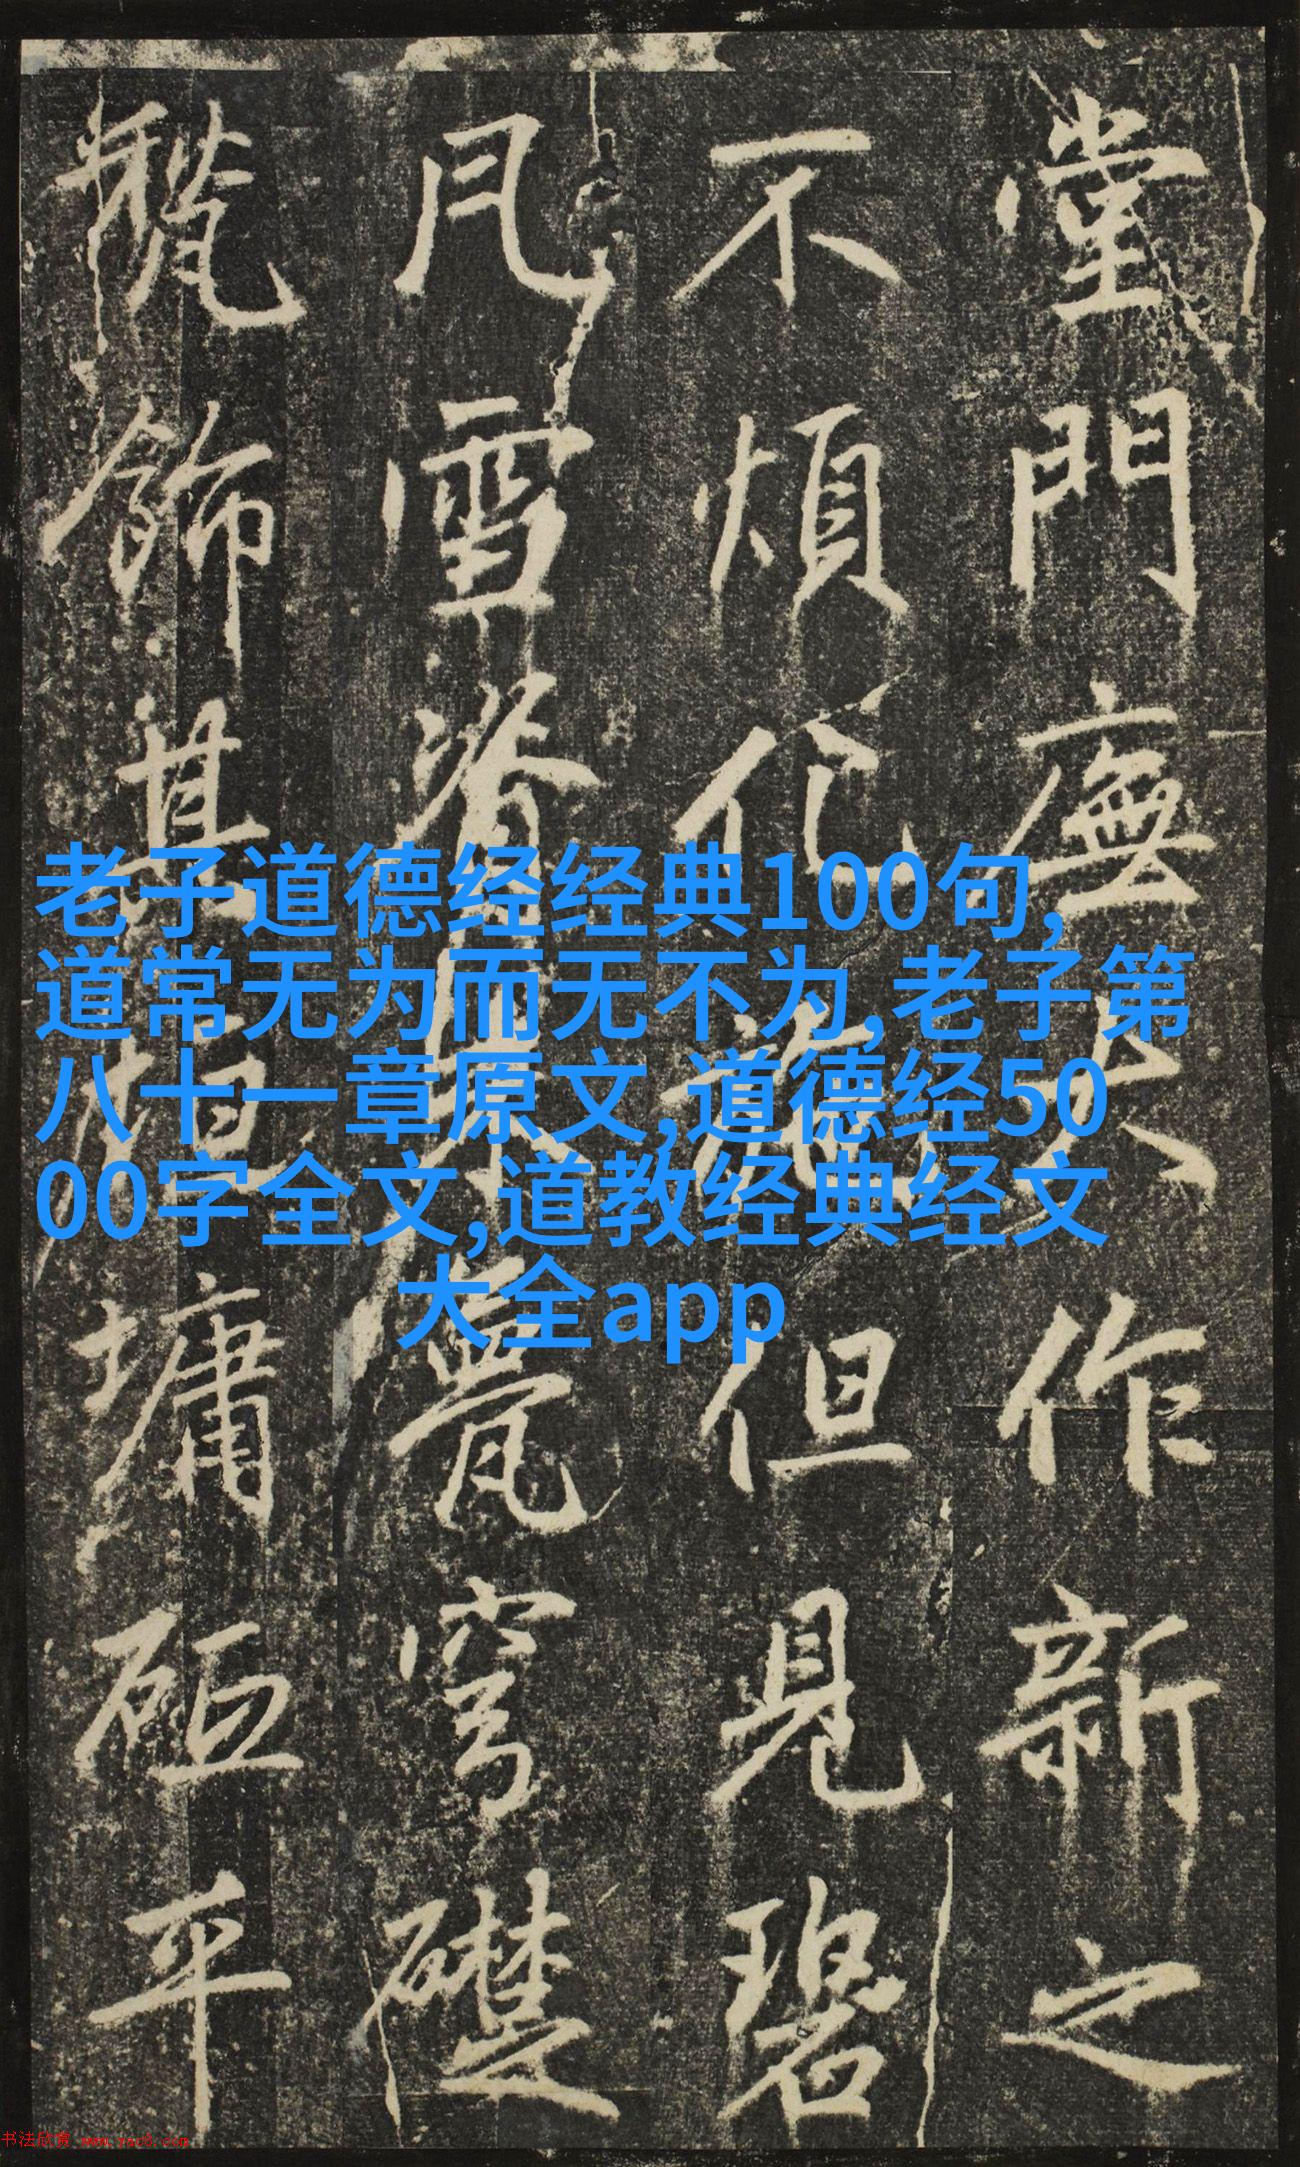 堂門廡大作新之
不煩化施但見碧
凡雪脊林甍穹礎
甃飾其垣墉砠平
老子道德经经典100句,
道常无为而无不为,老子第
八十一章原文,道德经50
00字全文,道教经典经文
大全app
书法欣赏 www.yac8.com